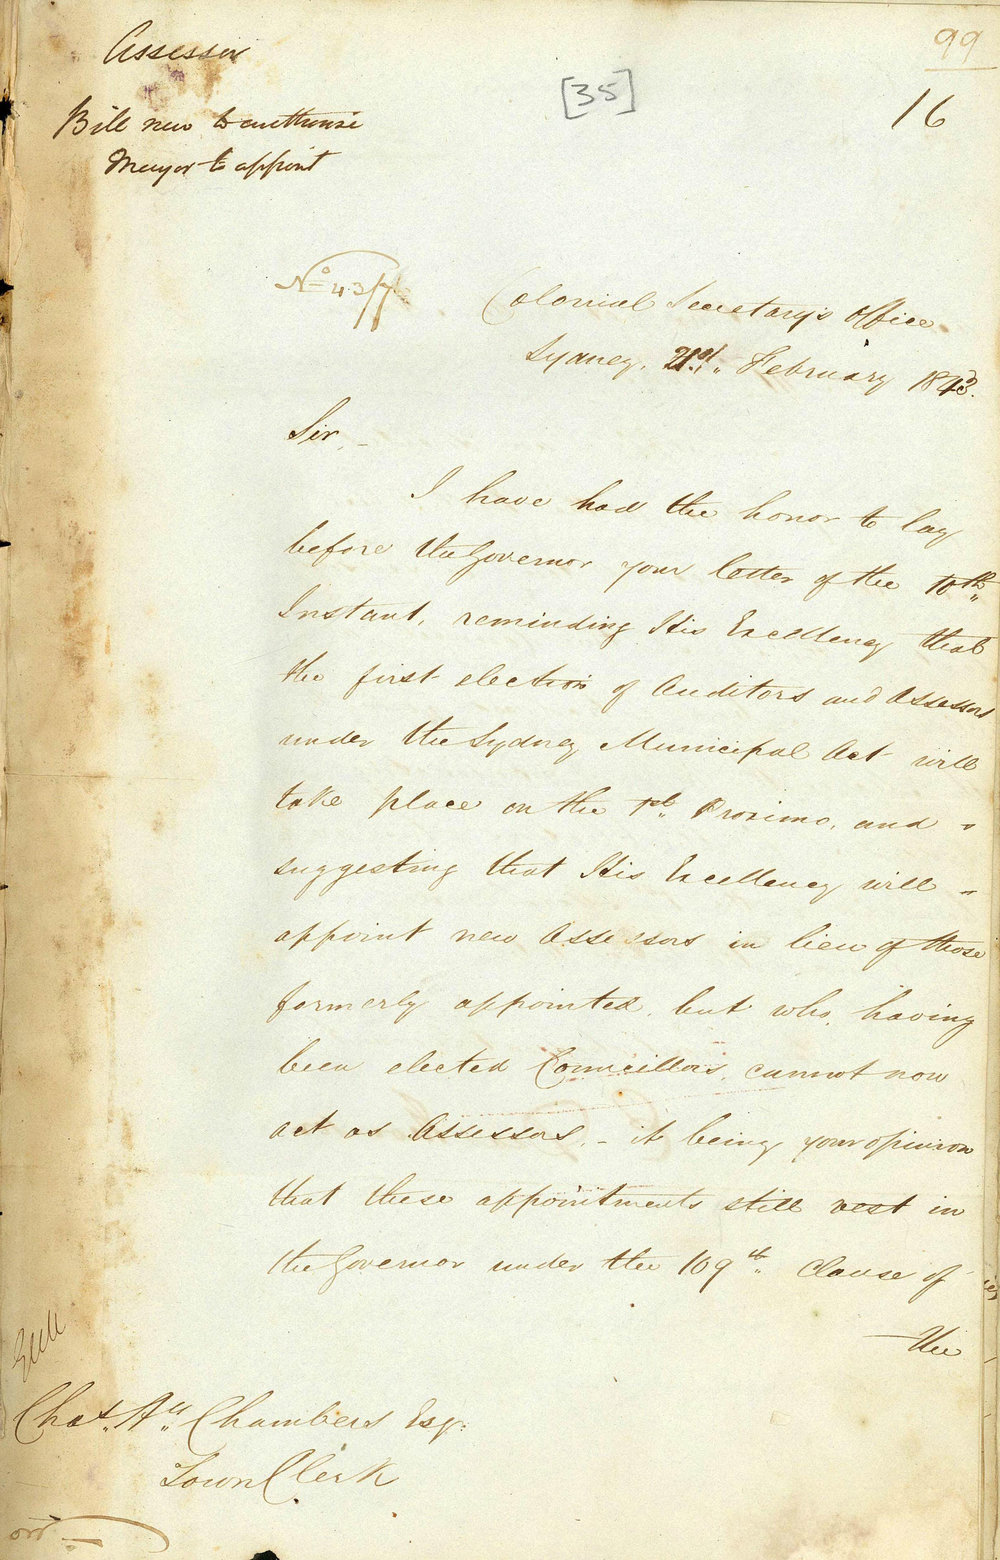 Assessor
99
[35]
16
Bill new to authorise
Mayor to appoint
No 43/7
Colonial Secretary's Office
Sydney, 21st February 1843.
Sir,
I have had the honor to lay
before the Governor your letter of the 10th
Instant, reminding His Excellency that
the first election of Auditors and Assessors
under the Sydney Municipal Act will
take place on the 1st Proximo, and
suggesting that His Excellency will
appoint new Assessors in lieu of those
formerly appointed, but who, having
been elected Councillors, cannot now
act as Assessors, - it being your opinion
that these appointments still vest in
the Governor under the 109th Clause of
the
Chas. Hy. Chambers Esq.
Town Clerk